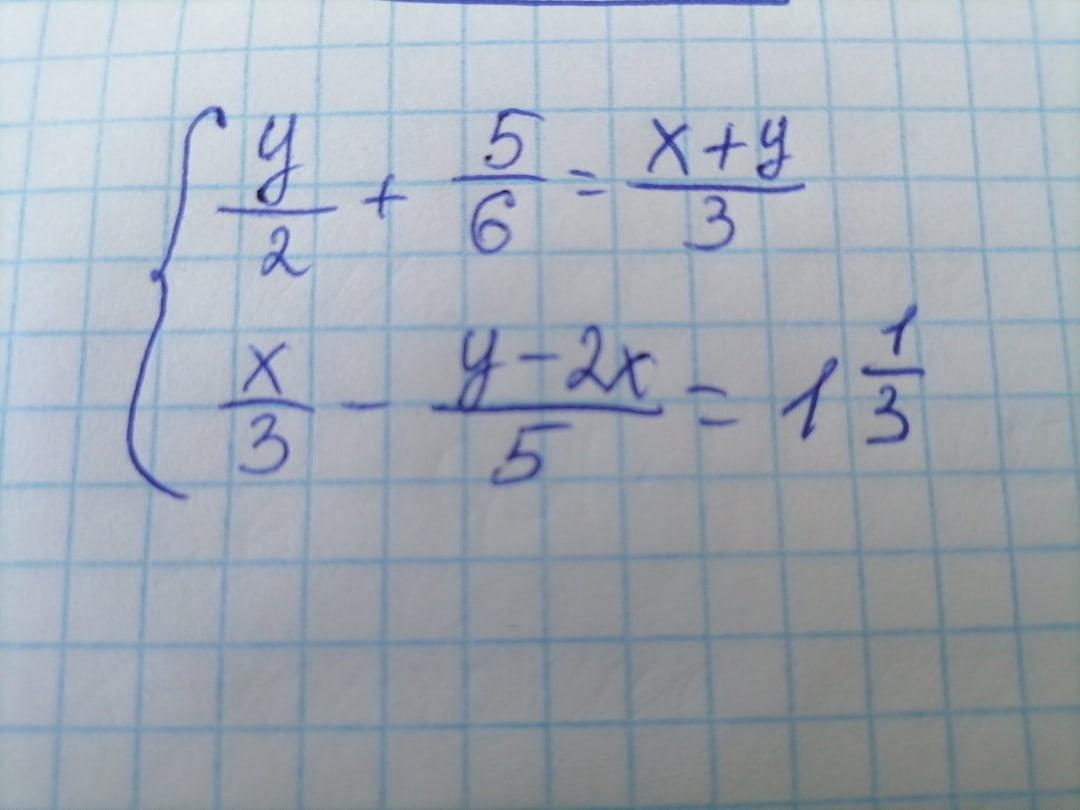 y/2 + 5/6 = x+y/3
x/3 - y-2x/5 = 1 1/3